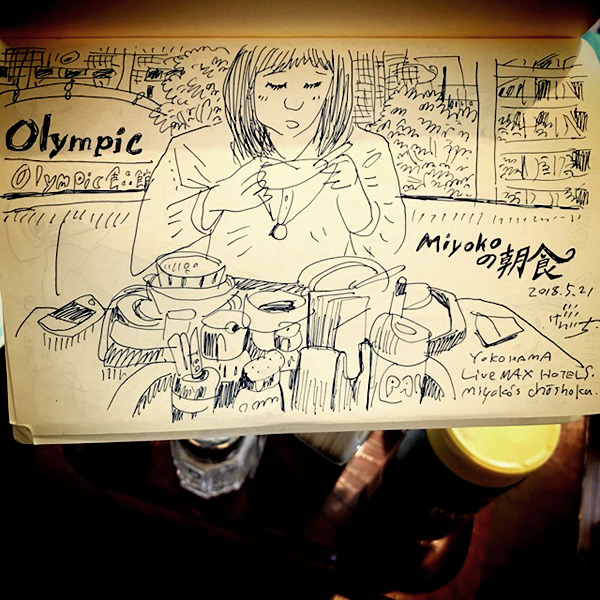 Olympic
Olympic
Miyokoの朝食
2018.5.21
YOKOHAMA
LiveMAX HOTELS.
miyoko's chōshoku.
PAN